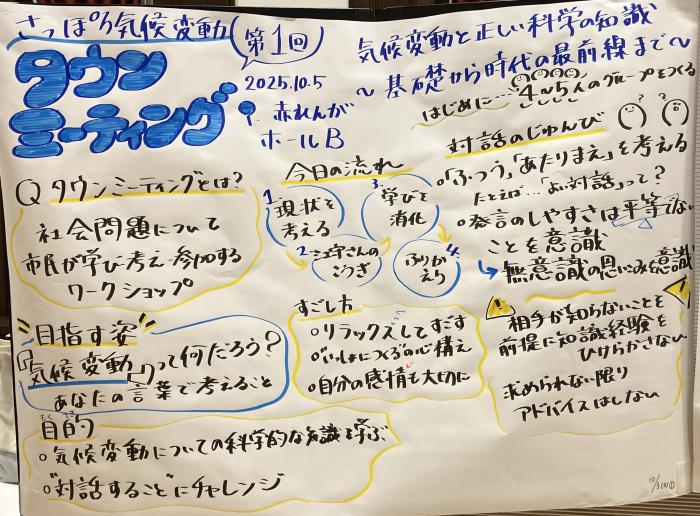 さっぽろ気候変動
第1回
タウン
ミーティング
2025.10.5
赤れんが
ホールB
気候変動と正しい科学の知識
～基礎から時代の最前線まで～
はじめに…4～5人のグループをつくる
対話のじゅんび
○「ふつう」「あたりまえ」を考える
たとえば…「よい対話」って?
○発言のしやすさは平等でない
ことを意識
無意識の思い込みを意識
相手が知らないことを
前提に知識経験を
ひけらかさない
求められない限り
アドバイスはしない
Q タウンミーティングとは?
社会問題について
市民が学び・考え・参加する
ワークショップ
今日の流れ
1. 現状を
考える
2. 江守さんの
こうぎ
3. 学びを
消化
4. ふり
かえり
すごし方
○リラックスしてすごす
○"いっしょにつくる"の心構え
○自分の感情も大切に
目指す姿
「気候変動」って何だろう?
あなたの言葉で考えること
目的
○気候変動についての科学的な知識を学ぶ
○"対話すること"にチャレンジ